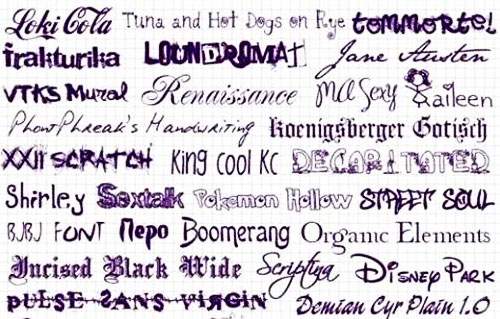 Loki Cola Tuna and Hot Dogs on Rye tommortel
frakturika LOUNDROMAT Jane Austen
VTKS Mural Renaissance Ma Sexy Raileen
PhontPhreak's Handwriting Koenigsberger Gotisch
XXII SCRATCH King cool KC DECAPITATED
Shirley Sextalk Pokemon Hollow STREET SOUL
BJBJ FONT Перо Boomerang Organic Elements
Incised Black Wide Scriptina DISNEY PARK
PULSE SANS VIRGIN Demian Cyr Plain 1.0